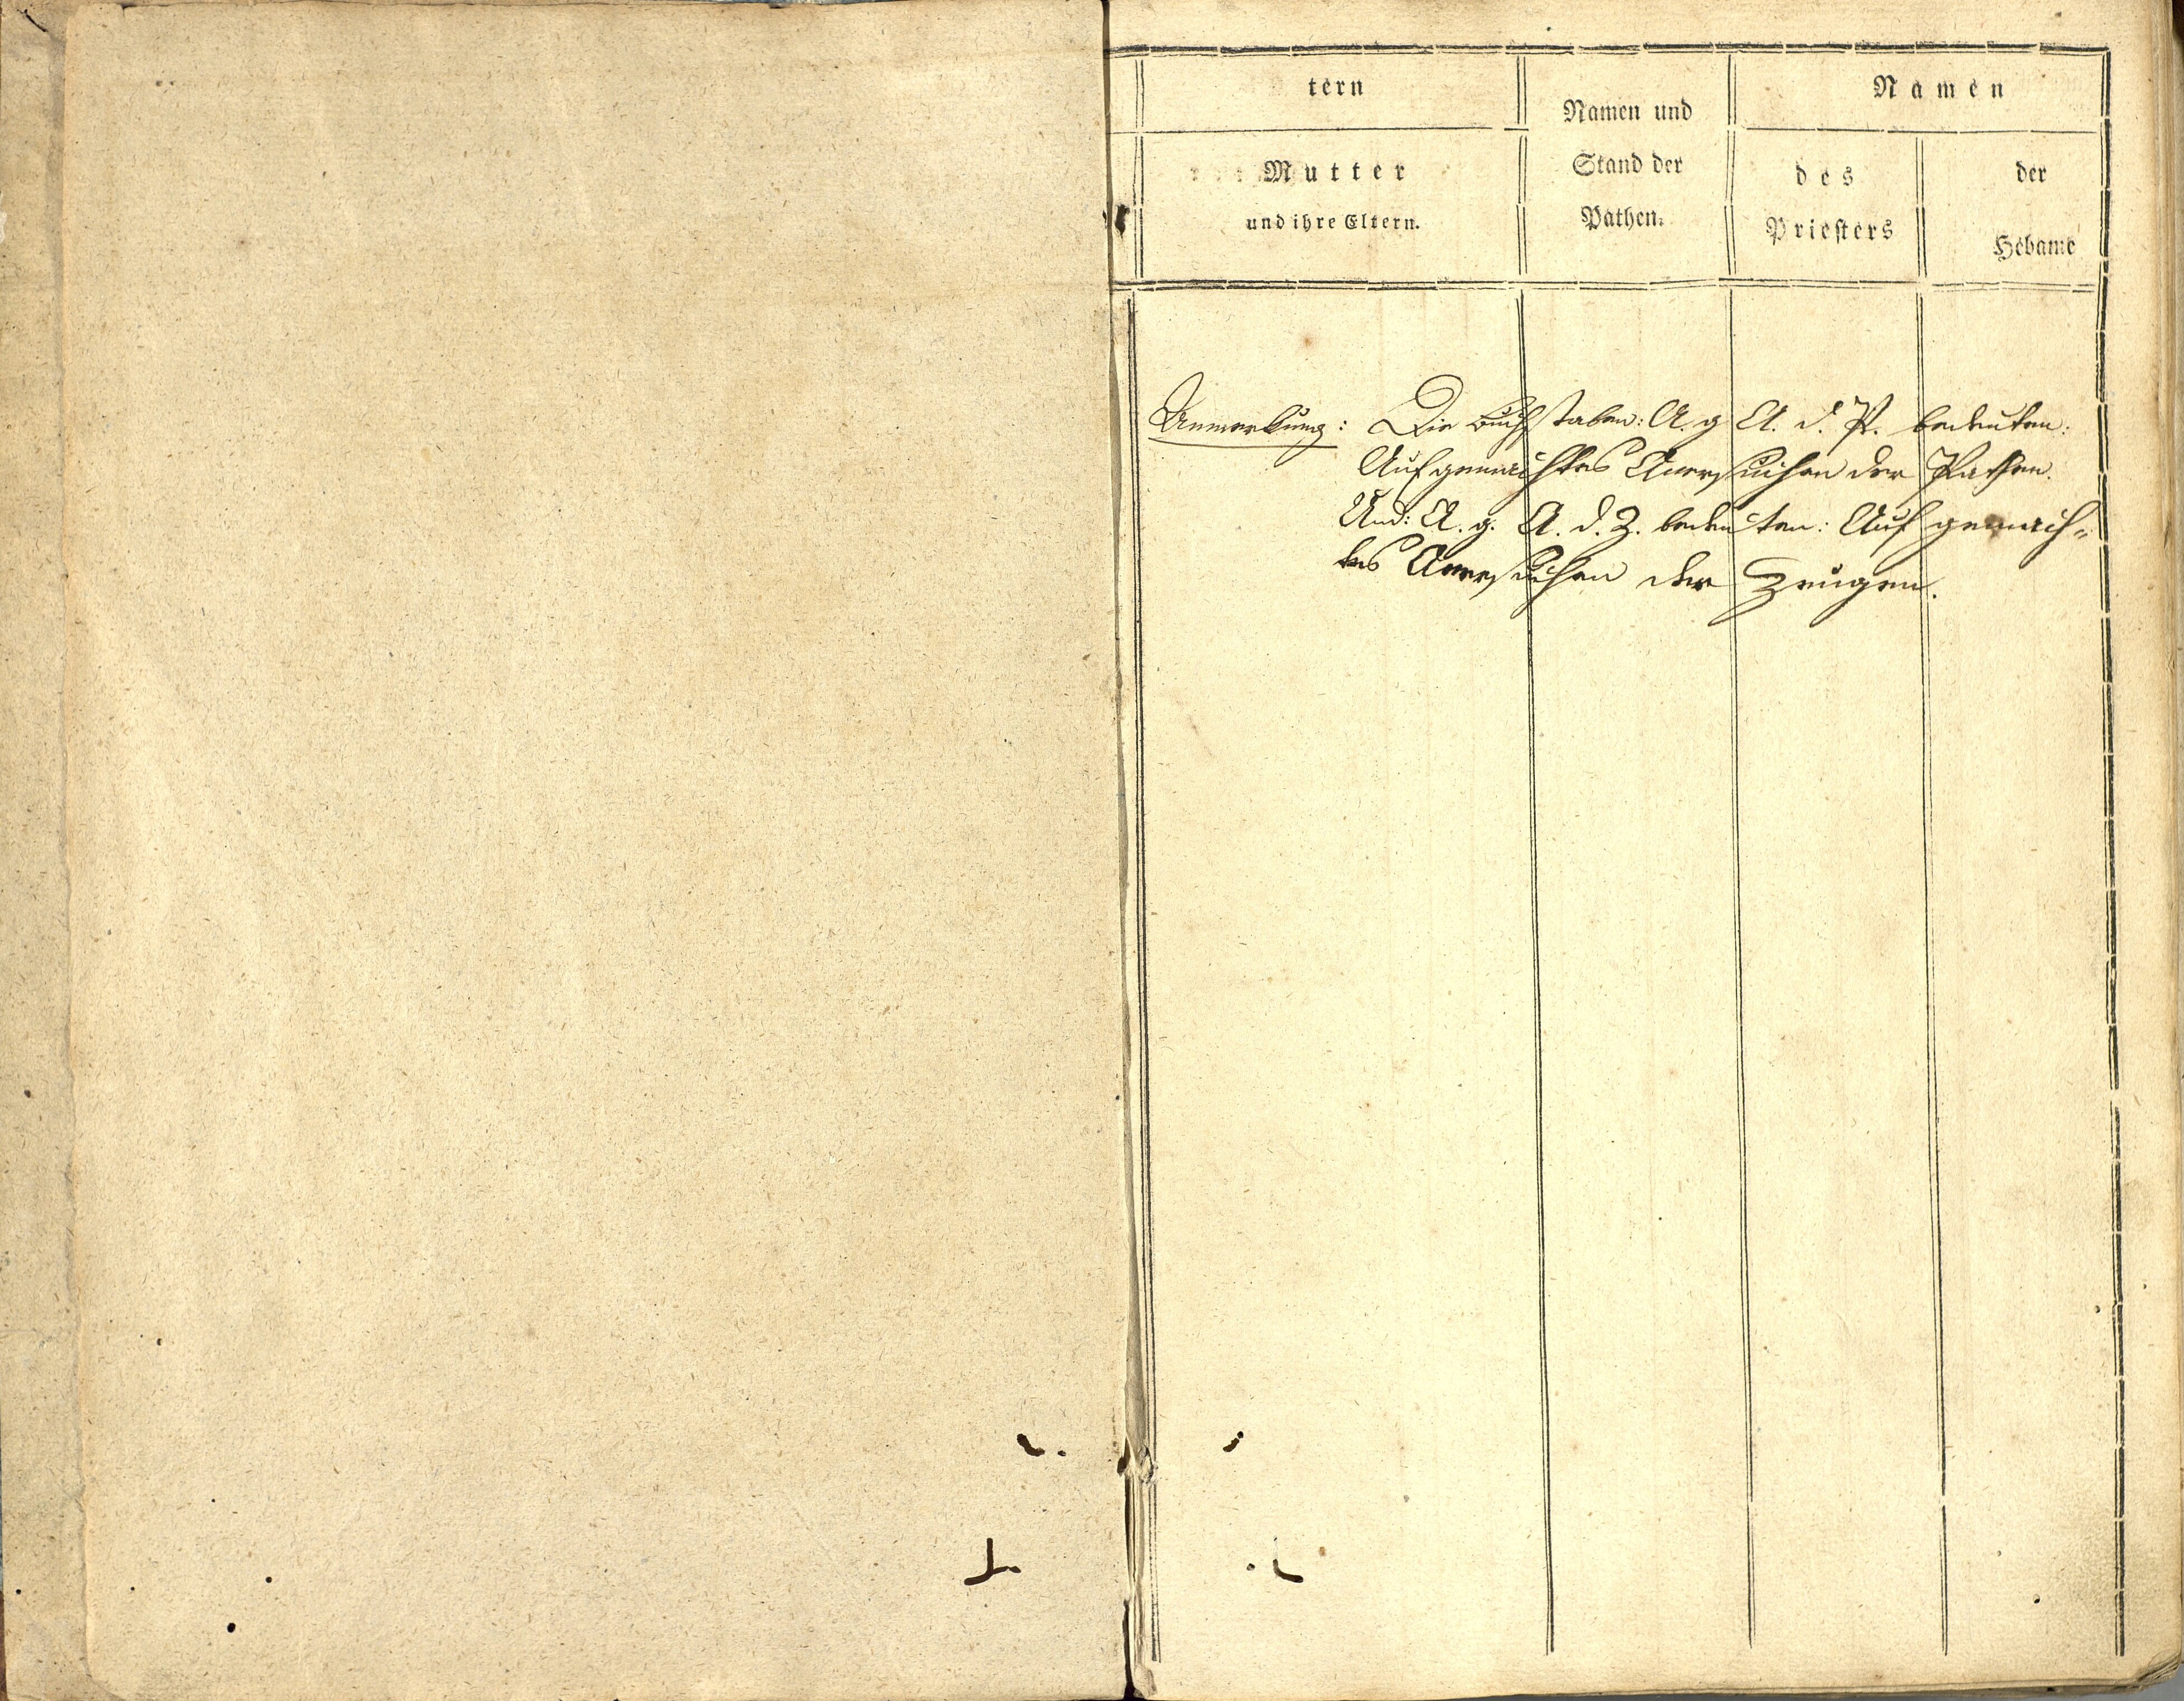 tern
Namen und
Stand der
Pathen.
Namen
Mutter
und ihre Eltern.
des
Priesters
der
Hebame
Anmerkung: Die Buchstaben: A. g A. d. P. bedeuten:
Auf gemachtes Anersuchen der Pathen.
Und: A. g. A. d. Z. bedeuten: Auf gemach=
tes Anersuchen der Zeugen.